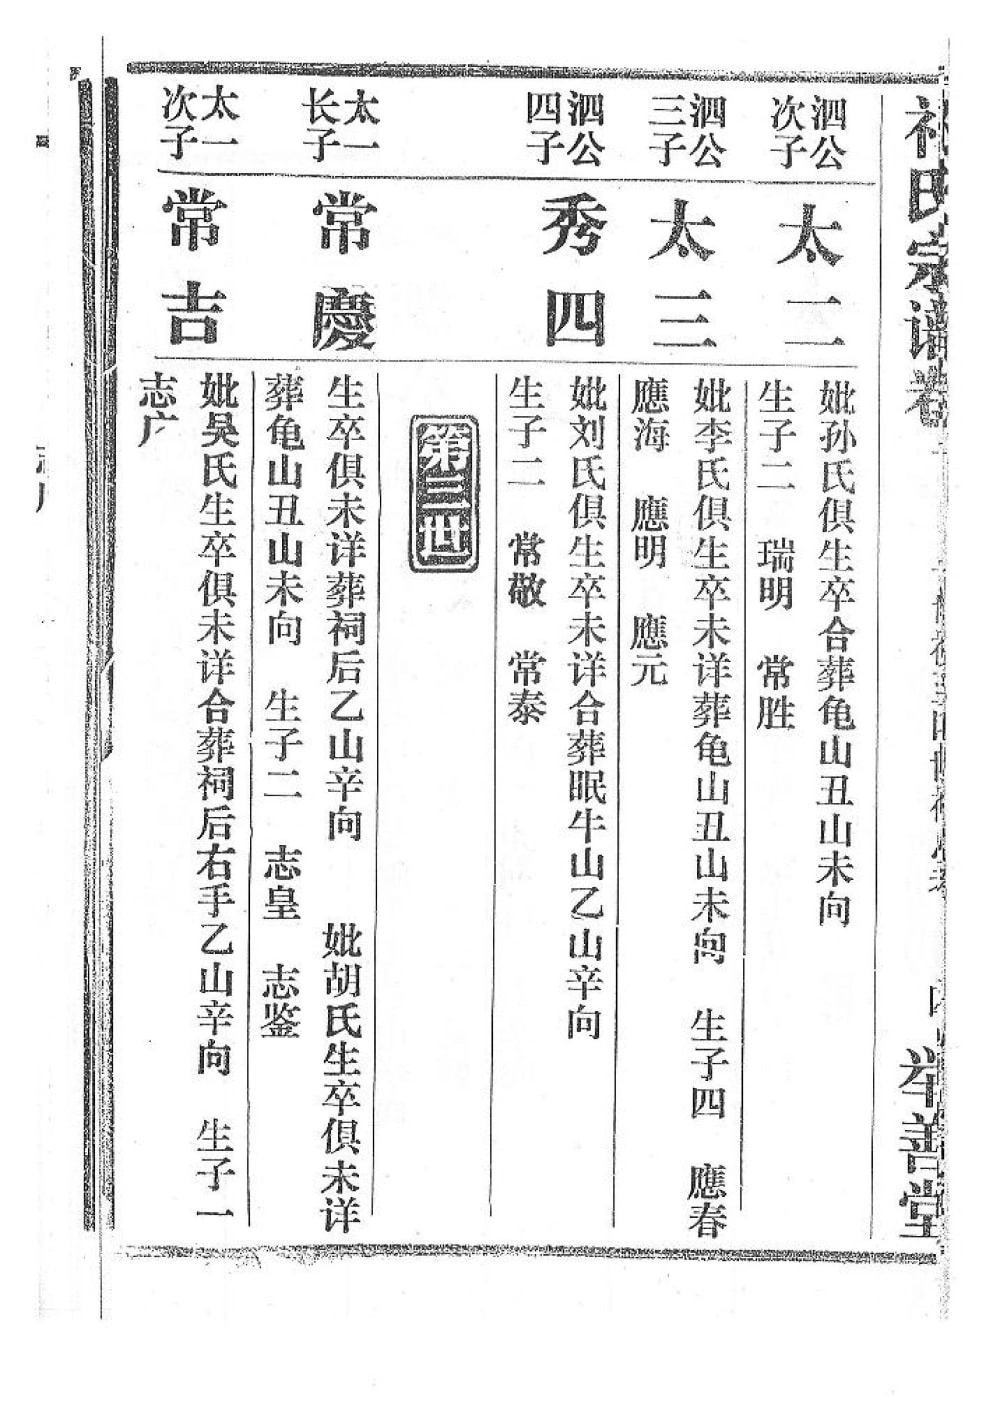 氏宗谱卷
举善堂
泗公
次子
太二
妣孙氏俱生卒合葬龟山丑山未向
生子二 瑞明 常胜
泗公
三子
太三
妣李氏俱生卒未详葬龟山丑山未向 生子四 應春
應海 應明 應元
泗公
四子
秀四
妣刘氏俱生卒未详合葬眠牛山乙山辛向
生子二 常敬 常泰
第三世
太一
长子
常慶
生卒俱未详葬祠后乙山辛向 妣胡氏生卒俱未详
葬龟山丑山未向 生子二 志皇 志鉴
太一
次子
常吉
妣吴氏生卒俱未详合葬祠后右手乙山辛向 生子一
志广